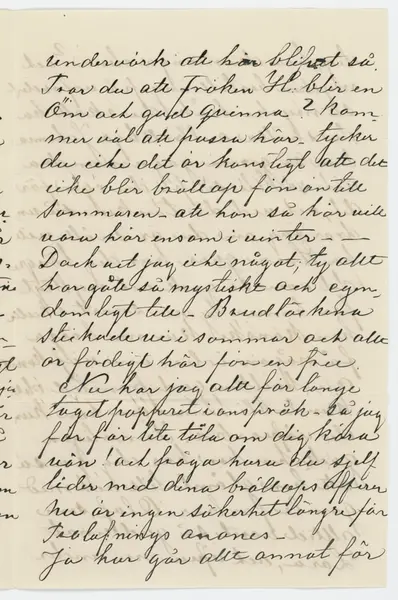 underværk att han blifvet så.
Tror du att fröken H. blir en
Öm och god qvinna? kom-
mer väl att passa här - tycker
du icke det är konstigt att det
icke blir bröllop förr än till
Sommaren - att hon så här vill
vara här ensam i vinter - -
Dock vet jag icke något, ty allt
har gått så mystiskt och egen-
domligt till - Brudtäckena
stickade vi i sommar och allt
är färdigt här för en Fru.
Nu har jag allt för länge
taget papperet i anspråk - så jag
får för lite tala om dig kära
vän! och fråga huru du sjelf
lider med dina bröllops affärer
nu är ingen säkerhet längre för
Trolofnings anones -
Ja hur går allt annat för